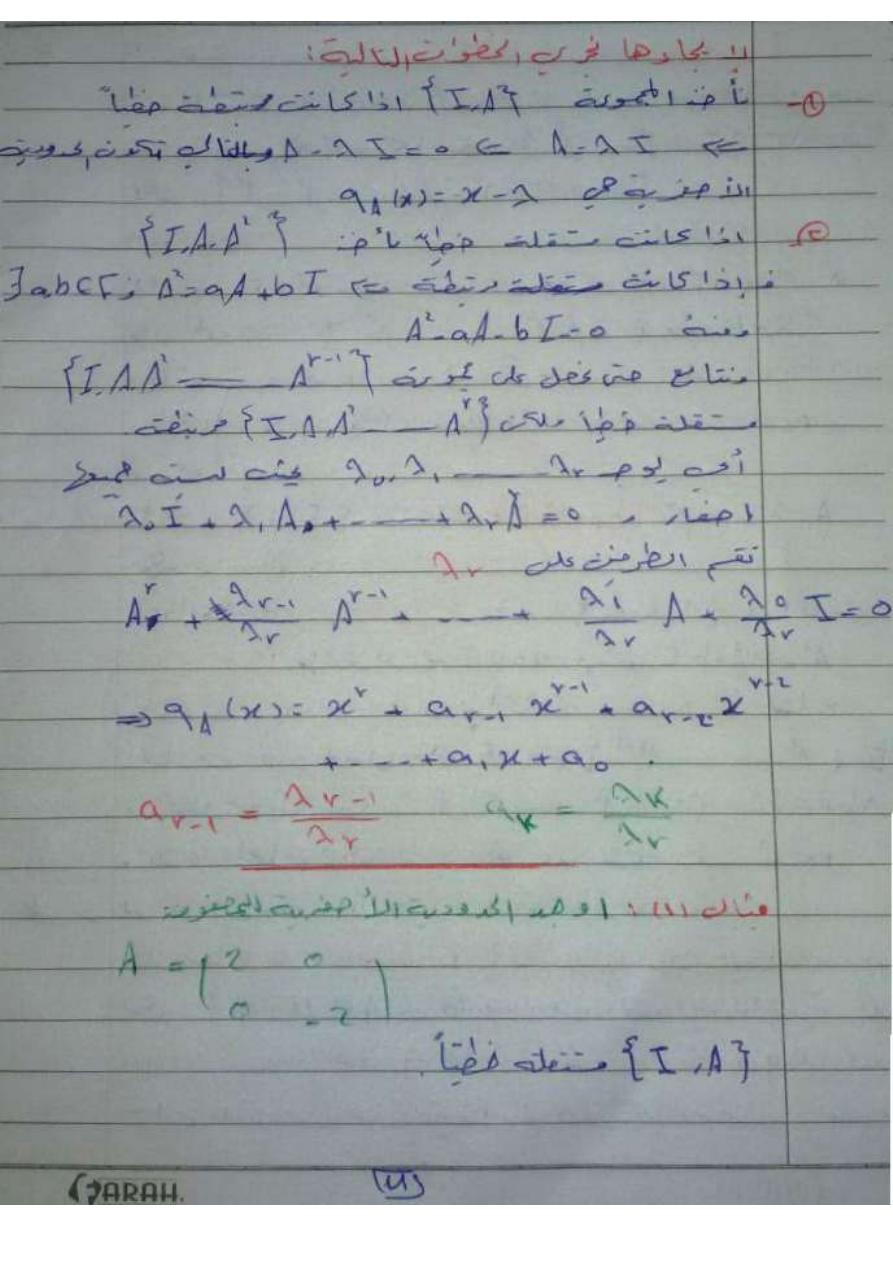 لإيجادها نجري الخطوات التالية:
①- نأخذ المجموعة {I,A} اذا كانت مرتبطة خطياً
⇐ A=λI ⇒ A-λI=0 وبالتالي تكون الحدودية
الأصغرية هي q_A(x)=x-λ
② اذا كانت مستقلة خطياً نأخذ {I,A,A²}
فإذا كانت مرتبطة ⇐ A²=aA+bI ; ∃a,b∈F
ومنه A²-aA-bI=0
ونتابع حتى نحصل على مجموعة {I,A,A²——A^{r-1}}
مستقلة خطياً ولكن {I,A,A²——A^r} مرتبطة
أي يوجد λ₀,λ₁,——λ_r بحيث ليست جميعها
اصفار و λ₀I+λ₁A+----+λ_rA^r=0
نقسم الطرفين على λ_r
A^r + λ_{r-1}/λ_r A^{r-1} + ---- + λ₁/λ_r A + λ₀/λ_r I=0
⇒ q_A(x)= x^r + a_{r-1} x^{r-1} + a_{r-2} x^{r-2}
+----+a₁x+a₀.
a_{r-1} = λ_{r-1}/λ_r a_k = λ_k/λ_r
مثال (1): اوجد الحدودية الأصغرية للمصفوفة
A = ( 2 0
0 -2 )
{I,A} مستقلة خطياً.
FARAH.